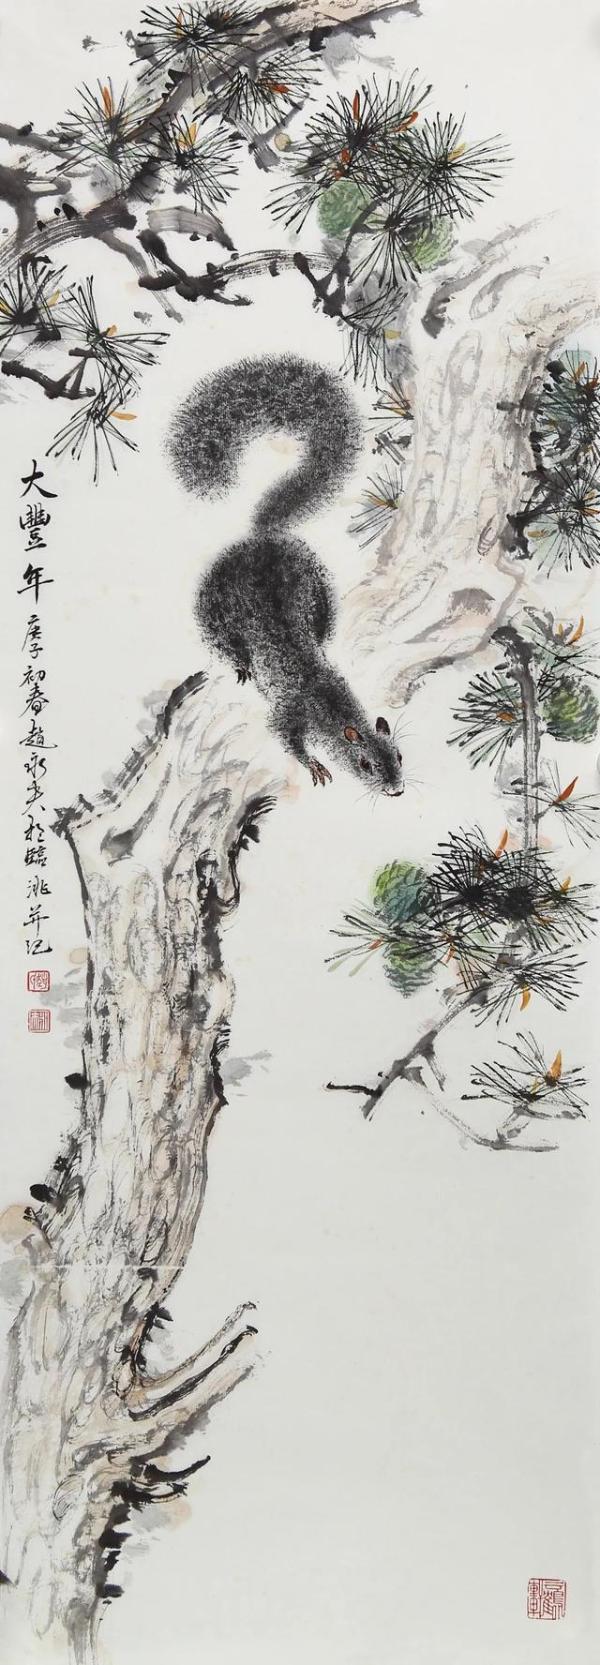 大豐年 庚子初春趙永夫於臨洮并记